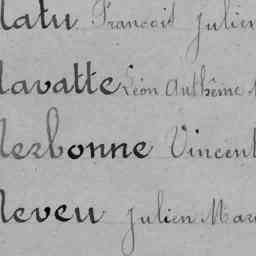 latu François Julien
lavatte Léon Anthême
lerbonne Vincent
leveu Julien Mar